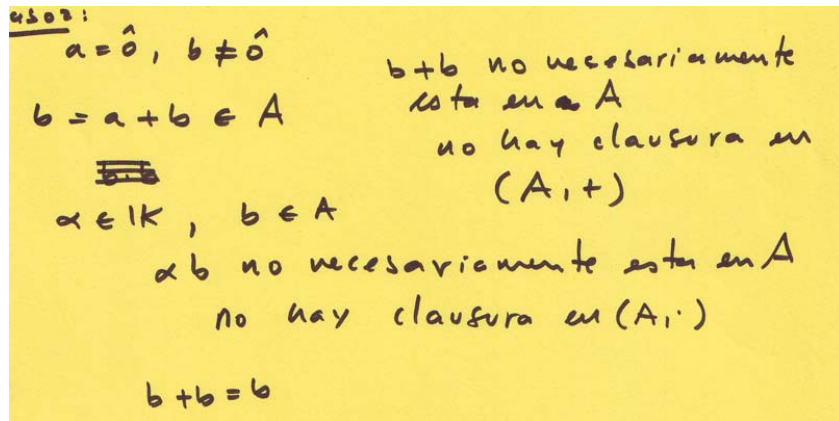 a = ô, b ≠ ô
b = a + b ∈ A
b+b no necesariamente
esta en A
no hay clausura en
(A, +)
α ∈ IK, b ∈ A
αb no necesariamente esta en A
no hay clausura en (A, ·)
b + b = b